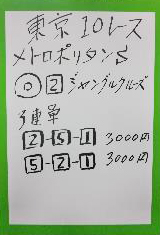 東京10レース
メトロポリタンS
◎ 2 ジャングルクルーズ
3連単
2-5-1 3000円
5-2-1 3000円